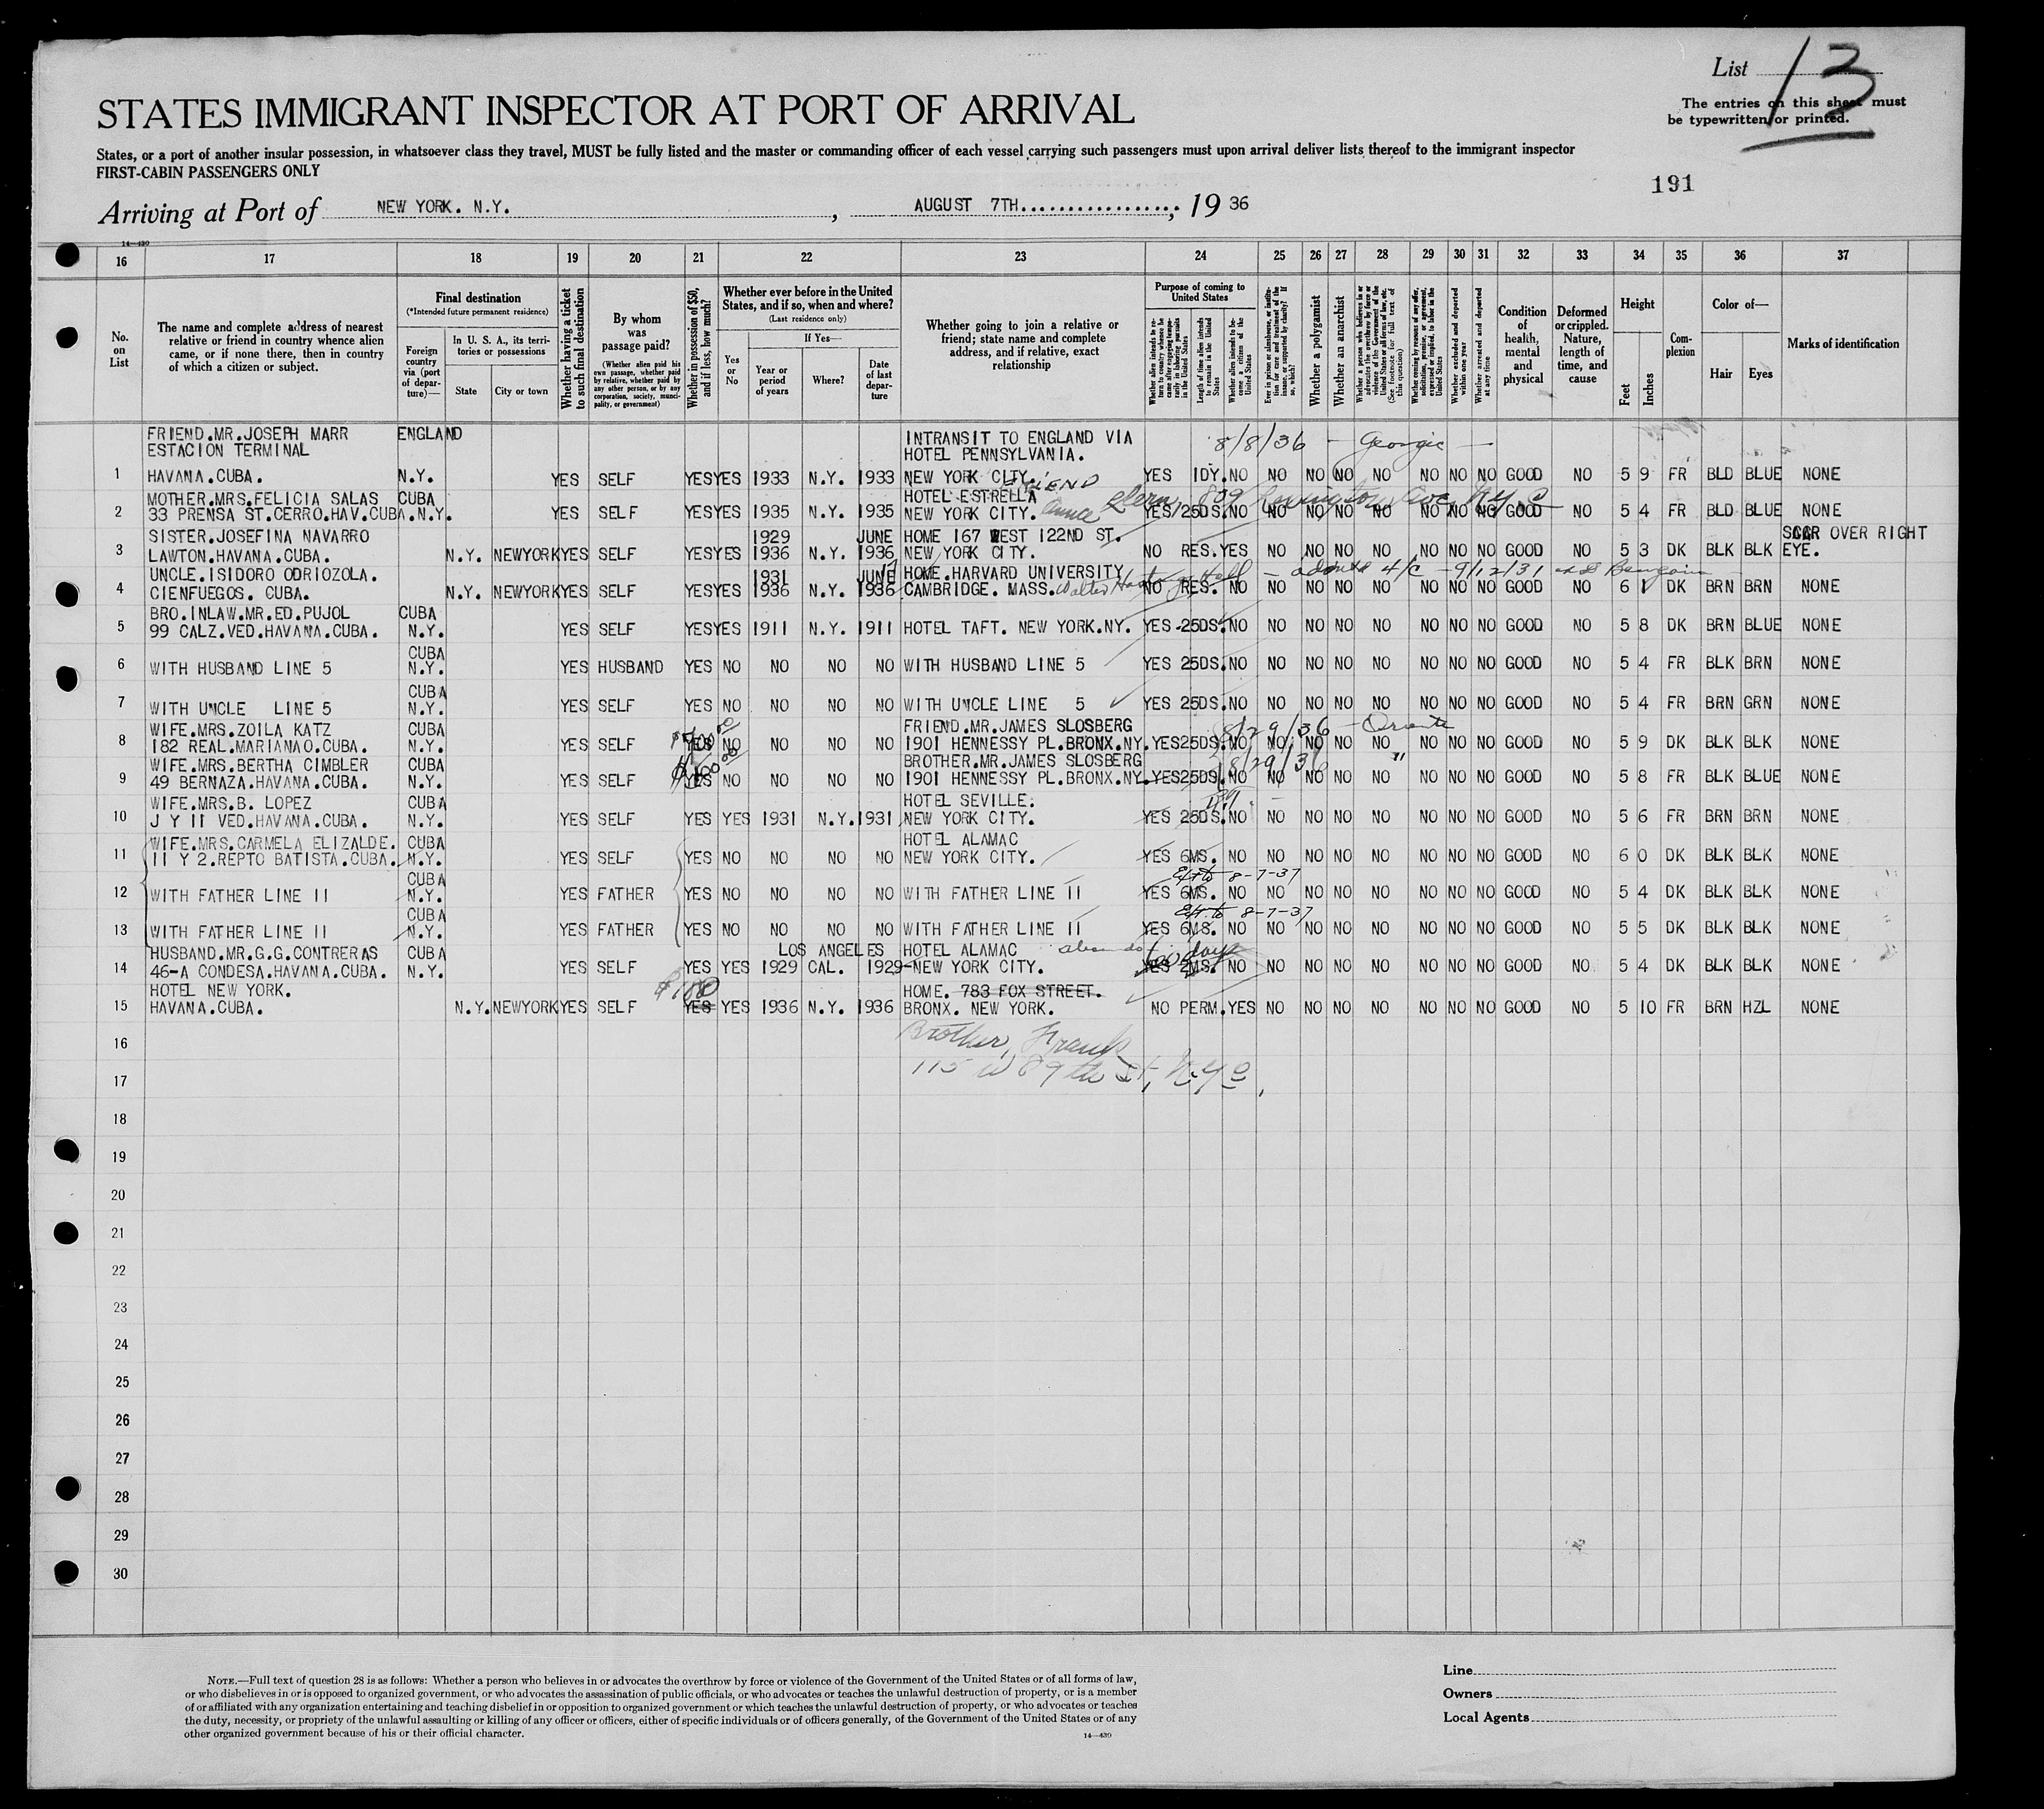 List 13
The entries on this sheet must
be typewritten or printed.
STATES IMMIGRANT INSPECTOR AT PORT OF ARRIVAL
States, or a port of another insular possession, in whatsoever class they travel, MUST be fully listed and the master or commanding officer of each vessel carrying such passengers must upon arrival deliver lists thereof to the immigrant inspector
FIRST-CABIN PASSENGERS ONLY
191
Arriving at Port of NEW YORK. N.Y. , AUGUST 7TH , 19 36
14—430
16 17 18 19 20 21 22 23 24 25 26 27 28 29 30 31 32 33 34 35 36 37
No. on List
The name and complete address of nearest relative or friend in country whence alien came, or if none there, then in country of which a citizen or subject.
Final destination
(*Intended future permanent residence)
Foreign country via (port of departure)—
In U. S. A., its territories or possessions
State
City or town
Whether having a ticket to such final destination
By whom was passage paid?
(Whether alien paid his own passage, whether paid by relative, whether paid by any other person, or by any corporation, society, municipality, or government)
Whether in possession of $50, and if less, how much?
Whether ever before in the United States, and if so, when and where?
(Last residence only)
Yes or No
If Yes—
Year or period of years
Where?
Date of last departure
Whether going to join a relative or friend; state name and complete address, and if relative, exact relationship
Purpose of coming to United States
Whether alien intends to return to country whence he came after engaging temporarily in laboring pursuits in the United States
Length of time alien intends to remain in the United States
Whether alien intends to become a citizen of the United States
Ever in prison or almshouse, or institution for care and treatment of the insane, or supported by charity? If so, which?
Whether a polygamist
Whether an anarchist
Whether a person who believes in or advocates the overthrow by force or violence of the Government of the United States or all forms of law, etc. (See footnote for full text of this question)
Whether coming by reason of any offer, solicitation, promise, or agreement, expressed or implied, to labor in the United States
Whether excluded and deported within one year
Whether arrested and deported at any time
Condition of health, mental and physical
Deformed or crippled. Nature, length of time, and cause
Height
Feet
Inches
Complexion
Color of—
Hair
Eyes
Marks of identification
FRIEND.MR.JOSEPH MARR ENGLAND INTRANSIT TO ENGLAND VIA 8/8/36 — Georgic —
ESTACION TERMINAL HOTEL PENNSYLVANIA.
1 HAVANA.CUBA. N.Y. YES SELF YES YES 1933 N.Y. 1933 NEW YORK CITY. YES 1DY. NO NO NO NO NO NO NO NO GOOD NO 5 9 FR BLD BLUE NONE
MOTHER.MRS.FELICIA SALAS CUBA HOTEL ESTRELLA FRIEND Anna 809 Lexington Ave, N.Y.C
2 33 PRENSA ST.CERRO.HAV.CUBA.N.Y. YES SELF YES YES 1935 N.Y. 1935 NEW YORK CITY. YES 25DS. NO NO NO NO NO NO NO NO GOOD NO 5 4 FR BLD BLUE NONE
SISTER.JOSEFINA NAVARRO 1929 JUNE HOME 167 WEST 122ND ST. SCAR OVER RIGHT
3 LAWTON.HAVANA.CUBA. N.Y. NEWYORK YES SELF YES YES 1936 N.Y. 1936 NEW YORK CITY. NO RES. YES NO NO NO NO NO NO NO GOOD NO 5 3 DK BLK BLK EYE.
UNCLE.ISIDORO ODRIOZOLA. 1931 JUNE 17 HOME.HARVARD UNIVERSITY 9/12/31
4 CIENFUEGOS. CUBA. N.Y. NEWYORK YES SELF YES YES 1936 N.Y. 1936 CAMBRIDGE. MASS. Walter Hastings Hall NO RES. NO NO NO NO NO NO NO NO GOOD NO 6 1 DK BRN BRN NONE
BRO.INLAW.MR.ED.PUJOL CUBA
5 99 CALZ.VED.HAVANA.CUBA. N.Y. YES SELF YES YES 1911 N.Y. 1911 HOTEL TAFT. NEW YORK.NY. YES 25DS. NO NO NO NO NO NO NO NO GOOD NO 5 8 DK BRN BLUE NONE
CUBA
6 WITH HUSBAND LINE 5 N.Y. YES HUSBAND YES NO NO NO NO WITH HUSBAND LINE 5 YES 25DS. NO NO NO NO NO NO NO NO GOOD NO 5 4 FR BLK BRN NONE
CUBA
7 WITH UNCLE LINE 5 N.Y. YES SELF YES NO NO NO NO WITH UNCLE LINE 5 YES 25DS. NO NO NO NO NO NO NO NO GOOD NO 5 4 FR BRN GRN NONE
WIFE.MRS.ZOILA KATZ CUBA FRIEND.MR.JAMES SLOSBERG 8/29/36 - Oriente
8 182 REAL.MARIANAO.CUBA. N.Y. YES SELF YES NO NO NO NO 1901 HENNESSY PL.BRONX.NY. YES 25DS. NO NO NO NO NO NO NO NO GOOD NO 5 9 DK BLK BLK NONE
WIFE.MRS.BERTHA CIMBLER CUBA BROTHER.MR.JAMES SLOSBERG 8/29/36 "
9 49 BERNAZA.HAVANA.CUBA. N.Y. YES SELF $100.00 YES NO NO NO NO 1901 HENNESSY PL.BRONX.NY. YES 25DS. NO NO NO NO NO NO NO NO GOOD NO 5 8 FR BLK BLUE NONE
WIFE.MRS.B. LOPEZ CUBA HOTEL SEVILLE.
10 J Y 11 VED.HAVANA.CUBA. N.Y. YES SELF YES YES 1931 N.Y. 1931 NEW YORK CITY. YES 25DS. NO NO NO NO NO NO NO NO GOOD NO 5 6 FR BRN BRN NONE
WIFE.MRS.CARMELA ELIZALDE. CUBA HOTEL ALAMAC
11 11 Y 2.REPTO BATISTA.CUBA. N.Y. YES SELF YES NO NO NO NO NEW YORK CITY. YES 6MS. NO NO NO NO NO NO NO NO GOOD NO 6 0 DK BLK BLK NONE
CUBA Ext to 8-7-37
12 WITH FATHER LINE 11 N.Y. YES FATHER YES NO NO NO NO WITH FATHER LINE 11 YES 6MS. NO NO NO NO NO NO NO NO GOOD NO 5 4 DK BLK BLK NONE
CUBA Ext. to 8-7-37
13 WITH FATHER LINE 11 N.Y. YES FATHER YES NO NO NO NO WITH FATHER LINE 11 YES 6MS. NO NO NO NO NO NO NO NO GOOD NO 5 5 DK BLK BLK NONE
HUSBAND.MR.G.G.CONTRERAS CUBA LOS ANGELES HOTEL ALAMAC 60 days
14 46-A CONDESA.HAVANA.CUBA. N.Y. YES SELF YES YES 1929 CAL. 1929 NEW YORK CITY. YES 2MS. NO NO NO NO NO NO NO NO GOOD NO 5 4 DK BLK BLK NONE
HOTEL NEW YORK. $100 HOME. 783 FOX STREET.
15 HAVANA.CUBA. N.Y. NEWYORK YES SELF YES YES 1936 N.Y. 1936 BRONX. NEW YORK. NO PERM. YES NO NO NO NO NO NO NO GOOD NO 5 10 FR BRN HZL NONE
16 Brother, Frank
17 115 W 89th St, N.Y.C.
18
19
20
21
22
23
24
25
26
27
28
29
30
NOTE.—Full text of question 28 is as follows: Whether a person who believes in or advocates the overthrow by force or violence of the Government of the United States or of all forms of law,
or who disbelieves in or is opposed to organized government, or who advocates the assassination of public officials, or who advocates or teaches the unlawful destruction of property, or is a member
of or affiliated with any organization entertaining and teaching disbelief in or opposition to organized government or which teaches the unlawful destruction of property, or who advocates or teaches
the duty, necessity, or propriety of the unlawful assaulting or killing of any officer or officers, either of specific individuals or of officers generally, of the Government of the United States or of any
other organized government because of his or their official character.
14—430
Line
Owners
Local Agents